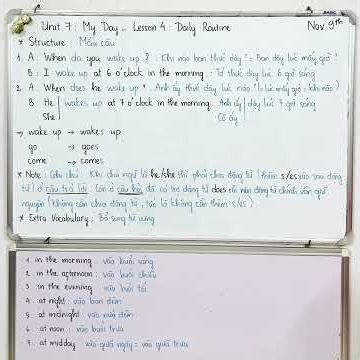 Unit 7: My Day - Lesson 4: Daily Routine Nov 9th
* Structure: Mẫu câu
1. A: When do you wake up? : Khi nào bạn thức dậy? = Bạn dậy lúc mấy giờ?
B: I wake up at 6 o'clock in the morning: Tớ thức dậy lúc 6 giờ sáng
2. A: When does he wake up?: Anh ấy thức dậy lúc nào?
B: He wakes up at 7 o'clock in the morning. Anh ấy dậy lúc 7 giờ sáng
She Cô ấy
→ wake up → wakes up
go → goes
come → comes
* Note: Ghi chú: Khi chủ ngữ là he/she thì phải chia động từ (thêm s/es vào sau động
từ) ở câu trả lời. Còn ở câu hỏi, đã có trợ động từ does rồi nên động từ chính vẫn giữ
nguyên (không cần chia động từ, tức là không cần thêm s/es)
* Extra Vocabulary: Bổ sung từ vựng
1. in the morning: vào buổi sáng
2. in the afternoon: vào buổi chiều
3. in the evening: vào buổi tối
4. at night: vào ban đêm
5. at midnight: vào nửa đêm
6. at noon: vào buổi trưa
7. at midday: vào giữa ngày = vào giữa trưa